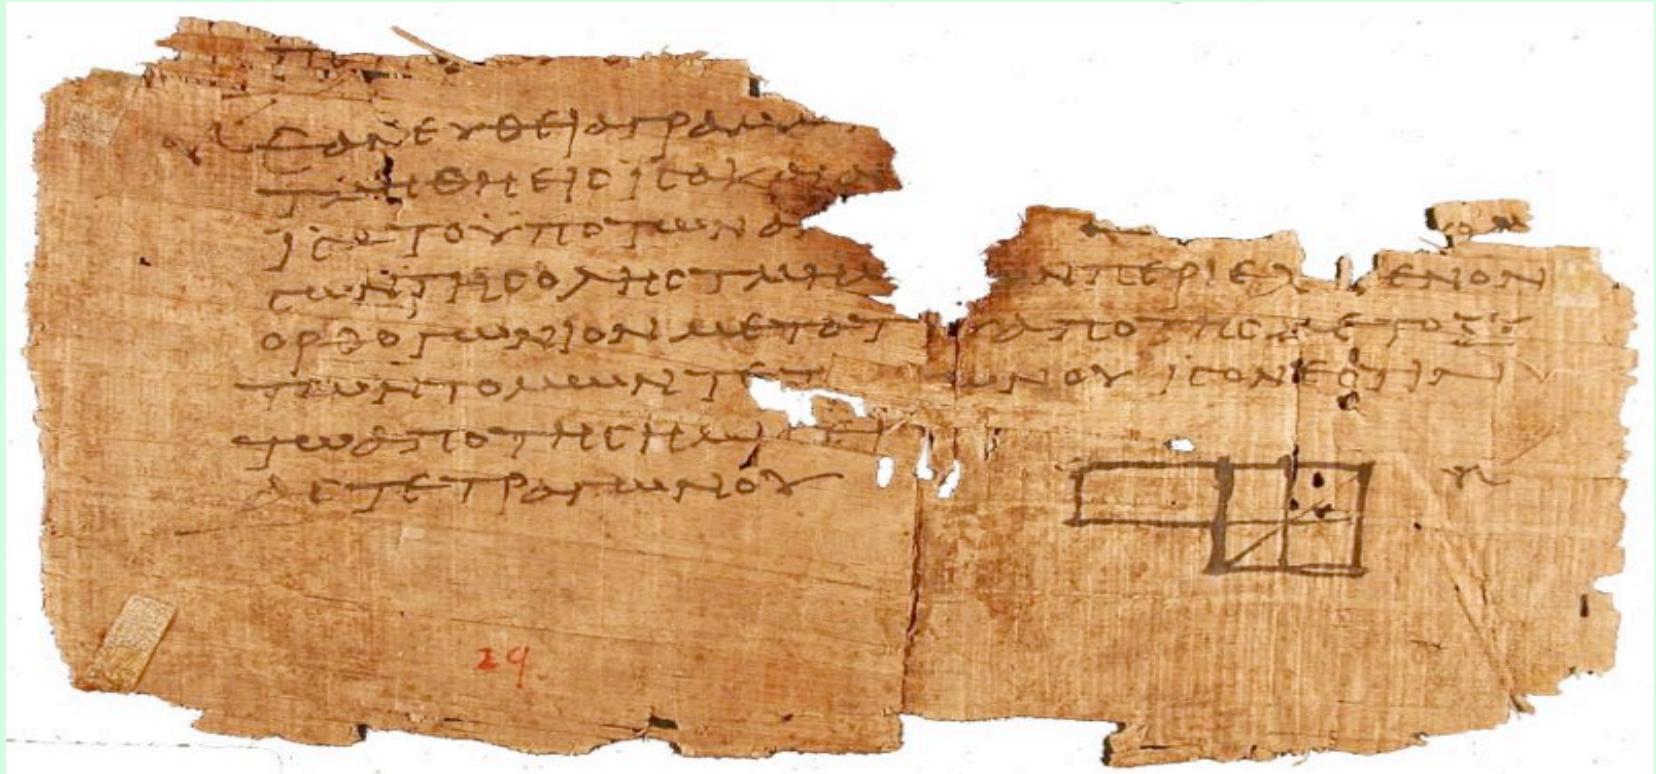 ⲠⲢ
ΕΑΝΕΥΘΕΙΑΓΡΑΜΜ
ΤΜΗΘΗΕΙϹΙϹΑΚΑΙΑΝ
ΙϹΑΤΟΥΠΟΤΩΝΑ
ϹΩΝΤΗϹΟΛΗϹΤΜΗΜ ΩΝΠΕΡΙΕΧ ΜΕΝΟΝ
ΟΡΘΟΓΩΝΙΟΝΜΕΤΑΤ ΑΠΟΤΗϹΜΕΤΟΞΥ
ΤΩΝΤΟΜΩΝΤΕΤ ΩΝΟΥ ΙϹΟΝΕϹΤΙΝ
ΤΩΑΠΟΤΗϹΗΜΙ
ΑϹΤΕΤΡΑΓΩΝΟΥ
29.